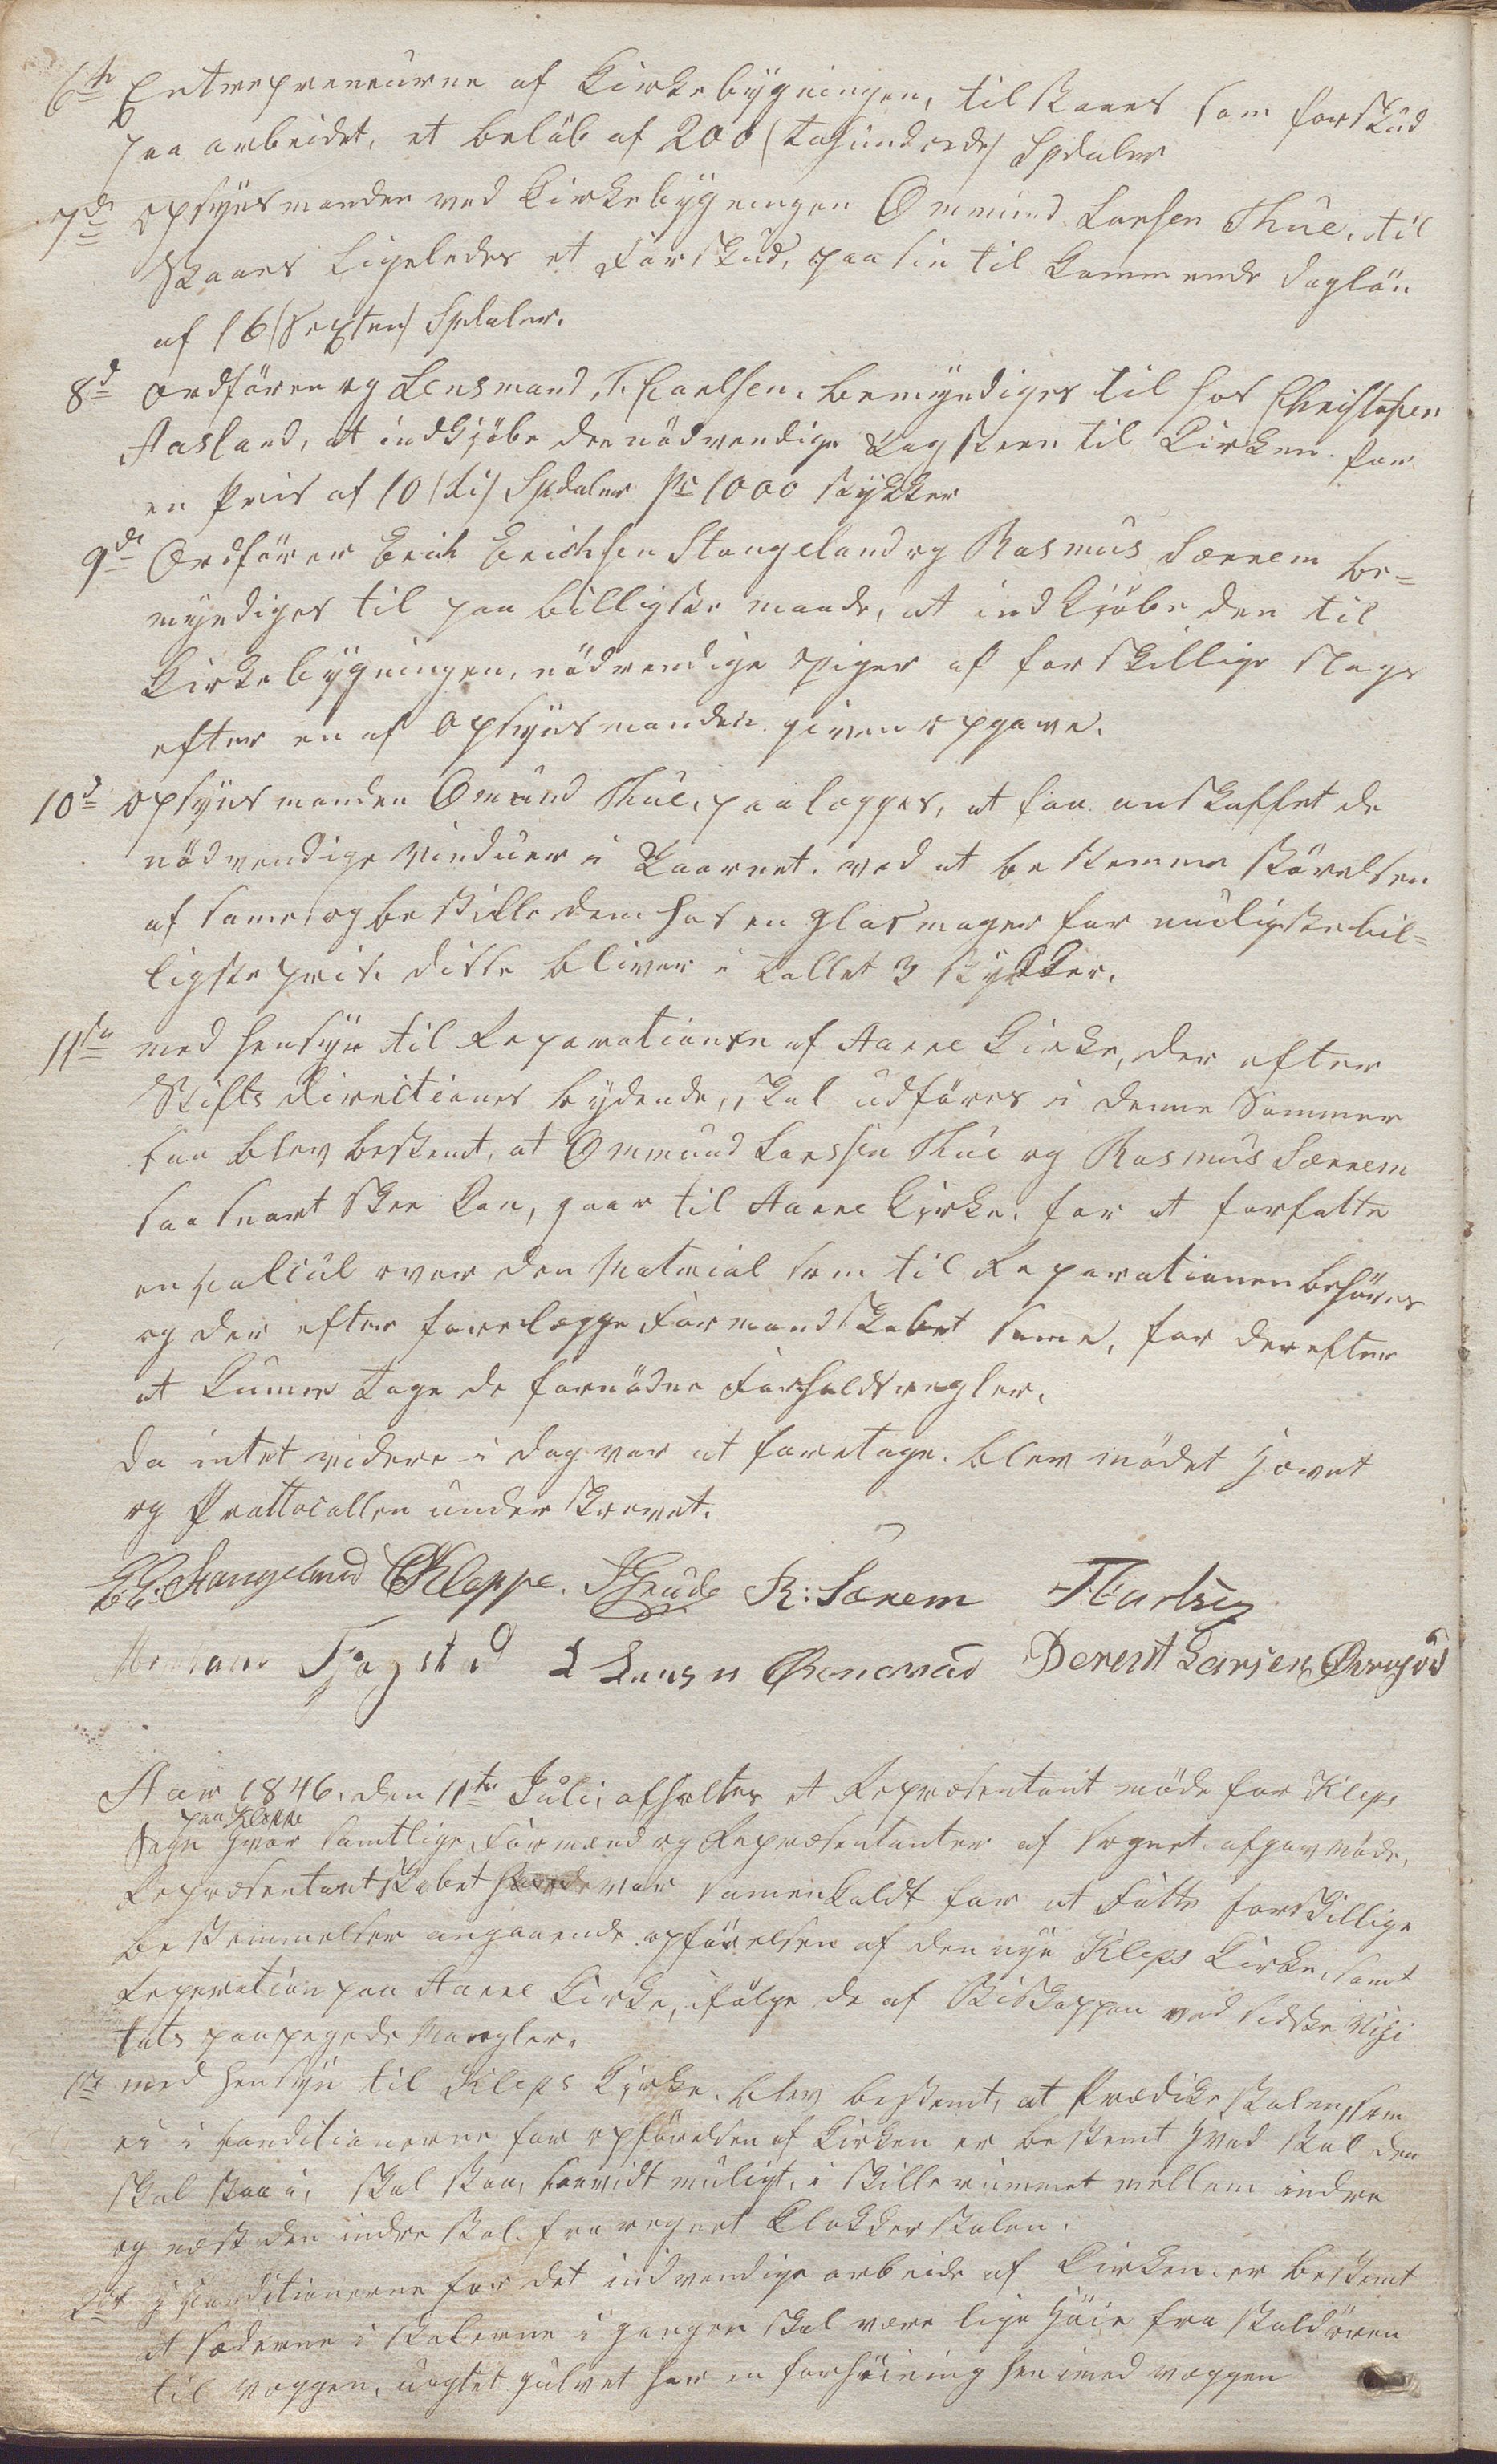 6te Entrepreneurne af Kirkebygningen, tilstaaes som forskud
paa arbeidet, et beløb af 200 (tohundrede) Spdaler
7de Opsynsmanden ved Kirkebygningen Ommund Larsen Thue, til
staaes ligeledes et Forskud, paa sin til kommende dagløn
af 16 (Sexten) Spdaler.
8d Ordføren og Lensmand, T. Carlsen. bemyndiges til hos Christofer
Aasland, at indkjøbe de nødvendige Tagsteen til Kirken. for
en Pris af 10 (ti) Spdaler pr 1000 stykker
9de Ordfører Erich Erichsen Stangeland og Rasmus Særrem be=
myndiges til paa billigste maade, at indkjøbe den til
Kirkebygningen, nødvendige spiger af forskillige slags
efter en af Opsynsmanden given opgave.
10d Opsynsmanden Ommund Thue, paalægges, at faa anskaffet de
nødvendige Vinduer i Taarnet. ved at bestemme størelsen
af same og bestille dem hos en glasmager for muligste bil=
ligste pris. disse bliver i tallet 3 stykker.
11te med hensyn til Reparationen af Aarre Kirke, der efter
Stifts directionens bydende, skal udføres i denne Sommer
saa blev bestemt, at Ommund Larssen Thue og Rasmus Særrem
saa snart skee kan, gaar til Aarre Kirke. for at forfatte
en calcul over den Material som til Reparationen behøves
og der efter forelægge Formandskabet same, for derefter
at kunne tage de fornødne Forholdsregler.
da intet videre i dag var at foretage. blev mødet hævet
og Prottocallen underskrevet.
E. E. Stangeland OKleppe. Grude R: Særem T Carlsen
Fjogstad L Larsen Berent Larsen
Aar 1846. den 11te Juli, afholtes et Repræsentant møde for Kleps
paa Kleppe
Sogn hvor samtlige Formænd og Repræsentanter af sognet. afgav Møde.
Repræsentantskabet var samenkaldt for at Fatte forskillige
bestemmelser angaaende opførelsen af den nye Kleps Kirke, samt
Reperation paa Aarre Kirke, ifølge de af Biskoppen ved sidste Visi
tats paapegede Mangler.
1te med hensyn til Kleps Kirke. blev bestemt, at Prædikestolen, som
ei i Conditionerne for opførelsen af Kirken er bestemt hvad stol den
skal staa i, skal staa, saavidt muligt, i skillerummet mellem indre
og næst den indre stol. fra regnet Klokkerstolen.
2det I Conditionerne for det indvendige arbeide af Kirken. er bestemt
at sæderne i stolerne i gangen skal være lige høie fra stoldøren
til væggen, uagtet gulvet har en forhøining hen imod væggen